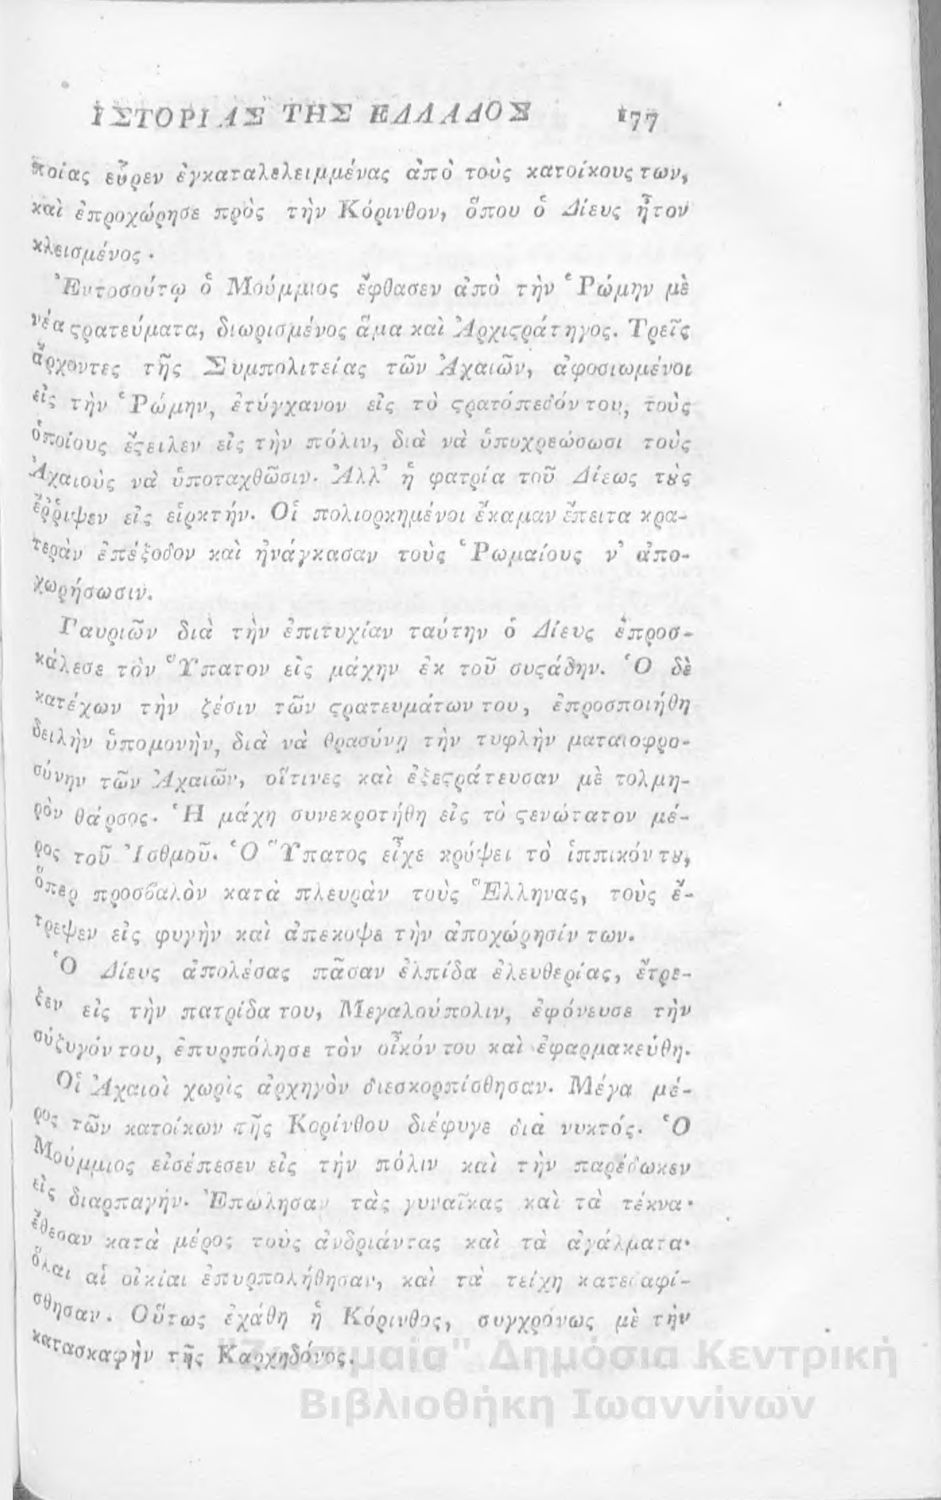 ἹΣΤΟΡΙΑΣ ΤΗΣ ΕΛΛΑΔΟΣ 177
ποίας εὗρεν ἐγκαταλελειμμένας ἀπὸ τοὺς κατοίκους των,
καὶ ἐπροχώρησε πρὸς τὴν Κόρινθον, ὅπου ὁ Δίευς ἦτον
κλεισμένος.
Ἐντοσούτῳ ὁ Μούμμιος ἔφθασεν ἀπὸ τὴν Ῥώμην μὲ
νέα ϛρατεύματα, διωρισμένος ἅμα καὶ Ἀρχιϛράτηγος. Τρεῖς
ἄρχοντες τῆς Συμπολιτείας τῶν Ἀχαιῶν, ἀφοσιωμένοι
εἰς τὴν Ῥώμην, ἐτύγχανον εἰς τὸ ϛρατόπεδόν του, τοὺς
ὁποίους ἔξειλεν εἰς τὴν πόλιν, διὰ νὰ ὑποχρεώσωσι τοὺς
Ἀχαιοὺς νὰ ὑποταχθῶσιν. Ἀλλ' ἡ φατρία τοῦ Δίεως τȣς
ἔῤῥιψεν εἰς εἱρκτήν. Οἱ πολιορκημένοι ἔκαμαν ἔπειτα κρα-
τερὰν ἐπέξοδον καὶ ἠνάγκασαν τοὺς Ῥωμαίους ν' ἀπο-
χωρήσωσιν.
Γαυριῶν διὰ τὴν ἐπιτυχίαν ταύτην ὁ Δίευς ἐπροσ-
κάλεσε τὸν Ὕπατον εἰς μάχην ἐκ τοῦ συϛάδην. Ὁ δὲ
κατέχων τὴν ζέσιν τῶν ϛρατευμάτων του, ἐπροσποιήθη
δειλὴν ὑπομονὴν, διὰ νὰ θρασύνῃ τὴν τυφλὴν ματαιοφρο-
σύνην τῶν Ἀχαιῶν, οἵτινες καὶ ἐξεϛράτευσαν μὲ τολμη-
ρὸν θάρσος. Ἡ μάχη συνεκροτήθη εἰς τὸ ϛενώτατον μέ-
ρος τοῦ Ἰσθμοῦ. Ὁ Ὕπατος εἶχε κρύψει τὸ ἱππικόν τȣ,
ὅπερ προσβαλὸν κατὰ πλευρὰν τοὺς Ἕλληνας, τοὺς ἔ-
τρεψεν εἰς φυγὴν καὶ ἀπέκοψε τὴν ἀποχώρησίν των.
Ὁ Δίευς ἀπολέσας πᾶσαν ἐλπίδα ἐλευθερίας, ἔτρε-
ξεν εἰς τὴν πατρίδα του, Μεγαλούπολιν, ἐφόνευσε τὴν
σύζυγόν του, ἐπυρπόλησε τὸν οἶκόν του καὶ ἐφαρμακεύθη.
Οἱ Ἀχαιοὶ χωρὶς ἀρχηγὸν διεσκορπίσθησαν. Μέγα μέ-
ρος τῶν κατοίκων τῆς Κορίνθου διέφυγε διὰ νυκτός. Ὁ
Μούμμιος εἰσέπεσεν εἰς τὴν πόλιν καὶ τὴν παρέδωκεν
εἰς διαρπαγήν. Ἐπώλησαν τὰς γυναῖκας καὶ τὰ τέκνα·
ἔθεσαν κατὰ μέρος τοὺς ἀνδριάντας καὶ τὰ ἀγάλματα·
ὅλαι αἱ οἰκίαι ἐπυρπολήθησαν, καὶ τὰ τείχη κατεδαφί-
σθησαν. Οὕτως ἐχάθη ἡ Κόρινθος, συγχρόνως μὲ τὴν
κατασκαφὴν τῆς Καρχηδόνος.
Δημόσια Κεντρική
Βιβλιοθήκη Ιωαννίνων